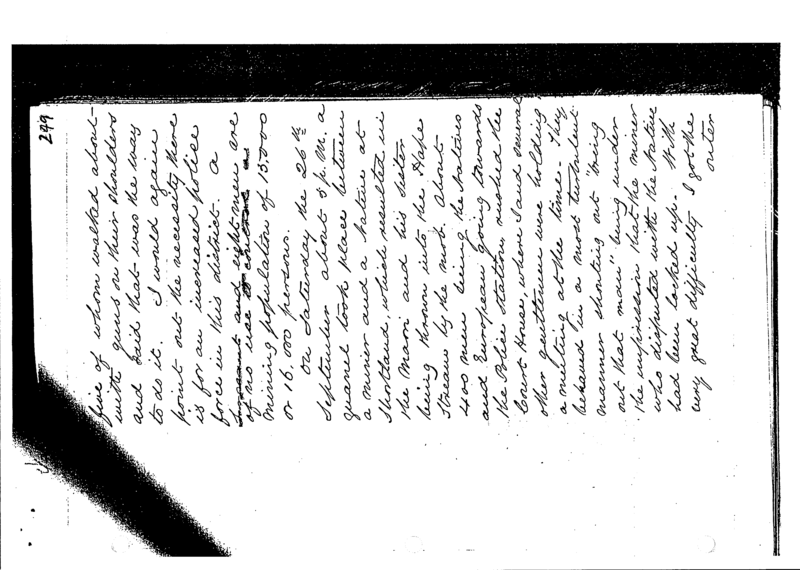 249
five of whom walked about
with guns on their shoulders
and said that was the way
to do it. I would again
point out the necessity there
is for an increased police
force in this district. A
Sergeant and eight men are
of no use to control a
mining population of 15.000
or 16.000 persons.
On Saturday the 26th
September about 5 p.m. a
quarrel took place between
a miner and a Native at
Shortland, which resulted in
the Maori and his sister
being thrown into the Hape
stream by the mob. About
400 men being the Natives
and European going towards
the Police Station rushed the
Court House, where I and several
other gentlemen were holding
a meeting at the time. They
behaved in a most turbulent
manner shouting out "bring
out that man" being under
the impression that the miner
who disputed with the Native
had been locked up. With
very great difficulty I got the
outer